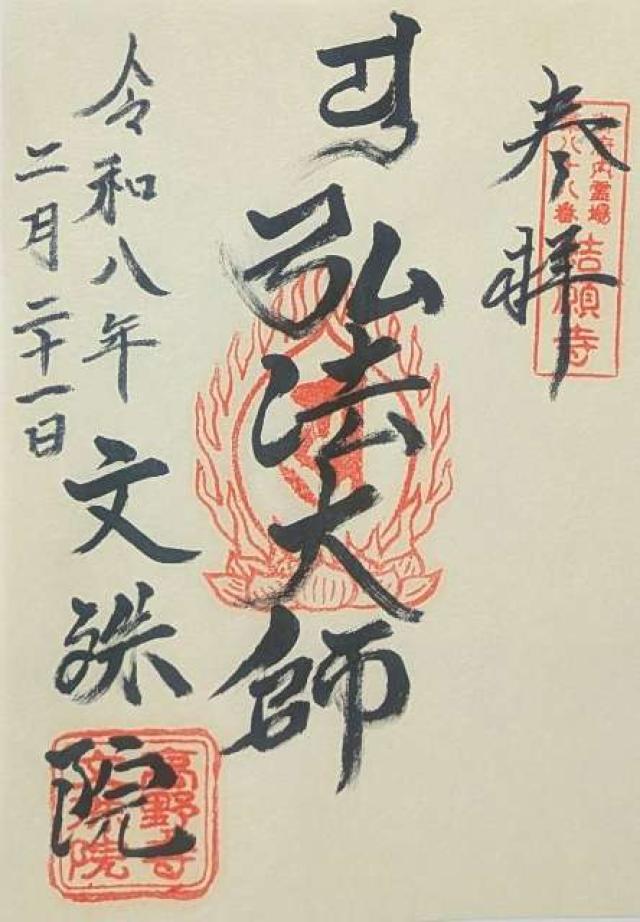 奉拝
御府内霊場
第八十八番
結願寺
弘法大師
令和八年
二月二十一日
文殊院
高野寺
文殊院